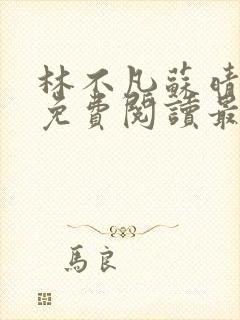 林不凡蘇晴
免費閱讀最
馬良